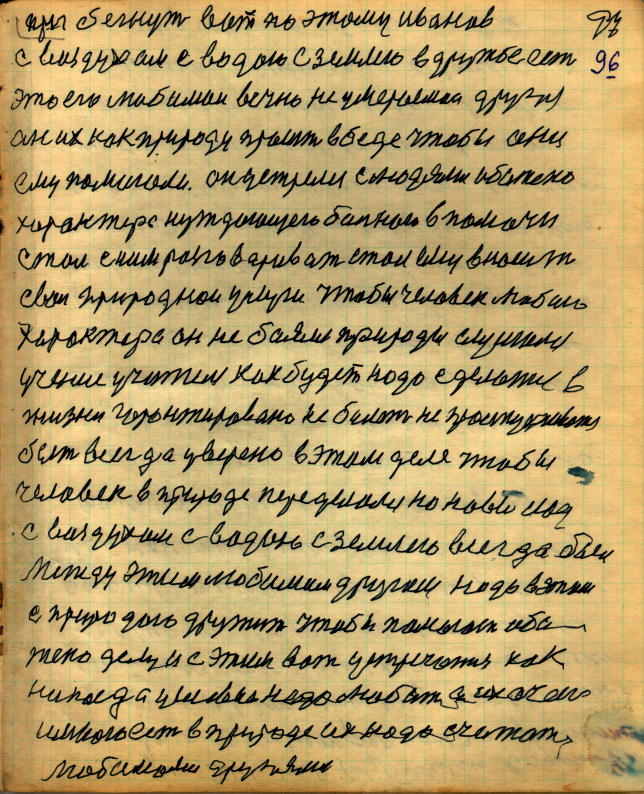 бегнут вот по этому иванов
96
с воздухам с водою с землею в дружбе ест
это его любимаи вечно не умераемаи друзя
он их как природу просит в беде чтобы они
ему помогали. он устрели с людями обижено
характера нуждающего болного в помочи
стал с ним разговариват стал ему вносит
свои природнои услуги чтобы человек любого
характера он не боялся природы слушался
учение учителя как будет надо сделается в
жизни гарантировано не болеть не простуживатся
быт всегда уверено в этом деле чтобы
человек в природе переделался по новы под
с воздухам с водою с землею всегда был
между этим любимыи друзеи надо в этом
с природою дружит чтобы помогат оби
жено делу и с этим вот устречатся как
никогда человека надо любит а их очень
много ест в природе их надо считат,
любимыми друзями